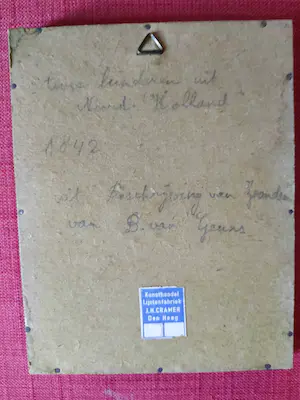 twee kinderen uit
Noord. Holland
1842
uit Beschrijving van
van B. van Geuns
Kunsthandel
Lijstenfabriek
J.H. CRAMER
Den Haag